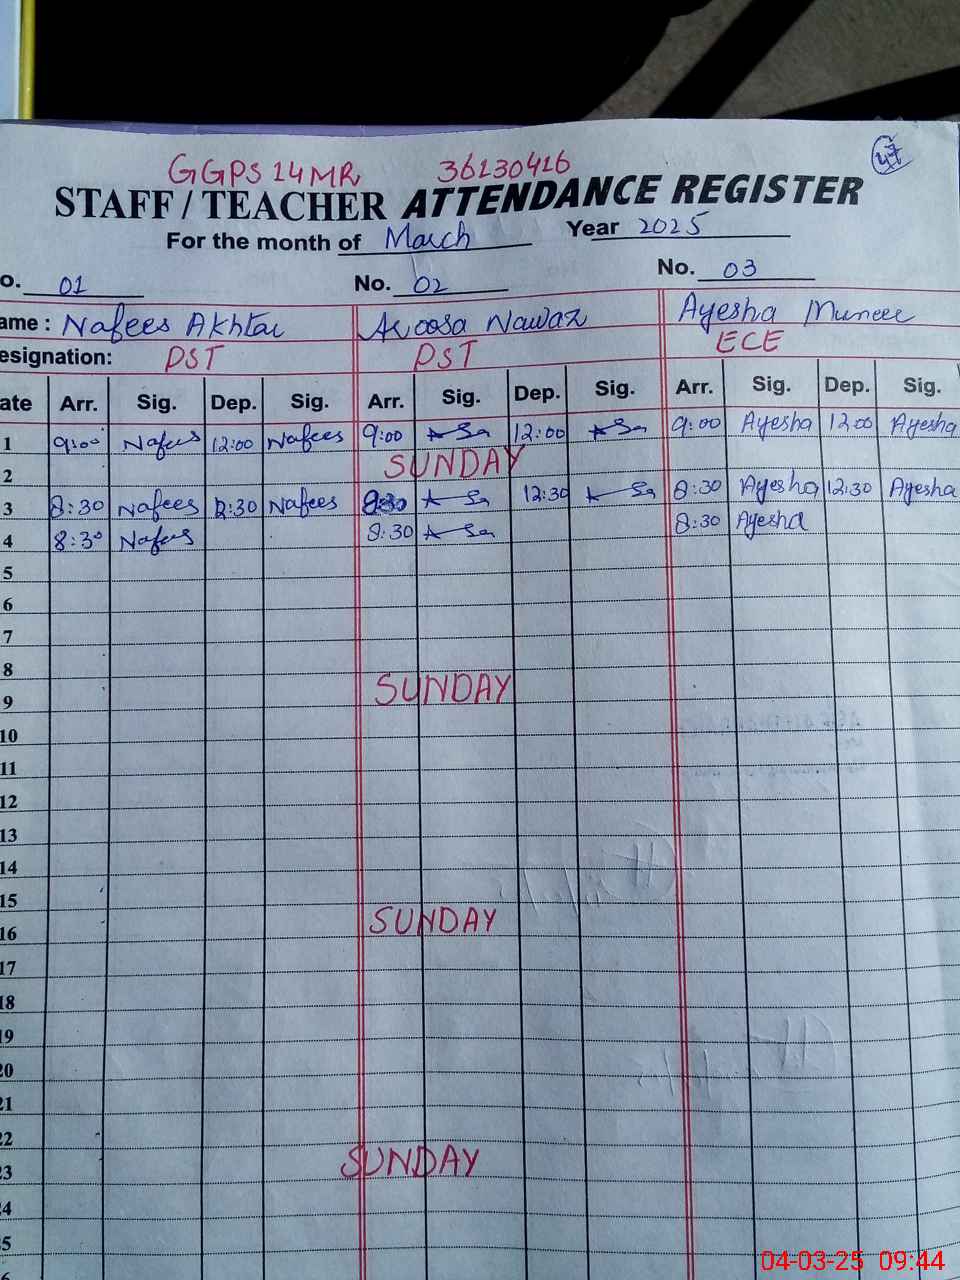 GGPS 14MR 36130416 47
STAFF / TEACHER ATTENDANCE REGISTER
For the month of March Year 2025
o. 01 No. 02 No. 03
ame : Nafees Akhtar Aroosa Nawaz Ayesha Muneer
esignation: PST PST ECE
ate Arr. Sig. Dep. Sig. Arr. Sig. Dep. Sig. Arr. Sig. Dep. Sig.
1 9:00 Nafees 12:00 Nafees 9:00 12:00 9:00 Ayesha 12:00 Ayesha
2 SUNDAY
3 8:30 Nafees 12:30 Nafees 8:30 12:30 8:30 Ayesha 12:30 Ayesha
4 8:30 Nafees 8:30 8:30 Ayesha
5
6
7
8
9 SUNDAY
10
11
12
13
14
15
16 SUNDAY
17
18
19
20
21
22
23 SUNDAY
24
25
04-03-25 09:44